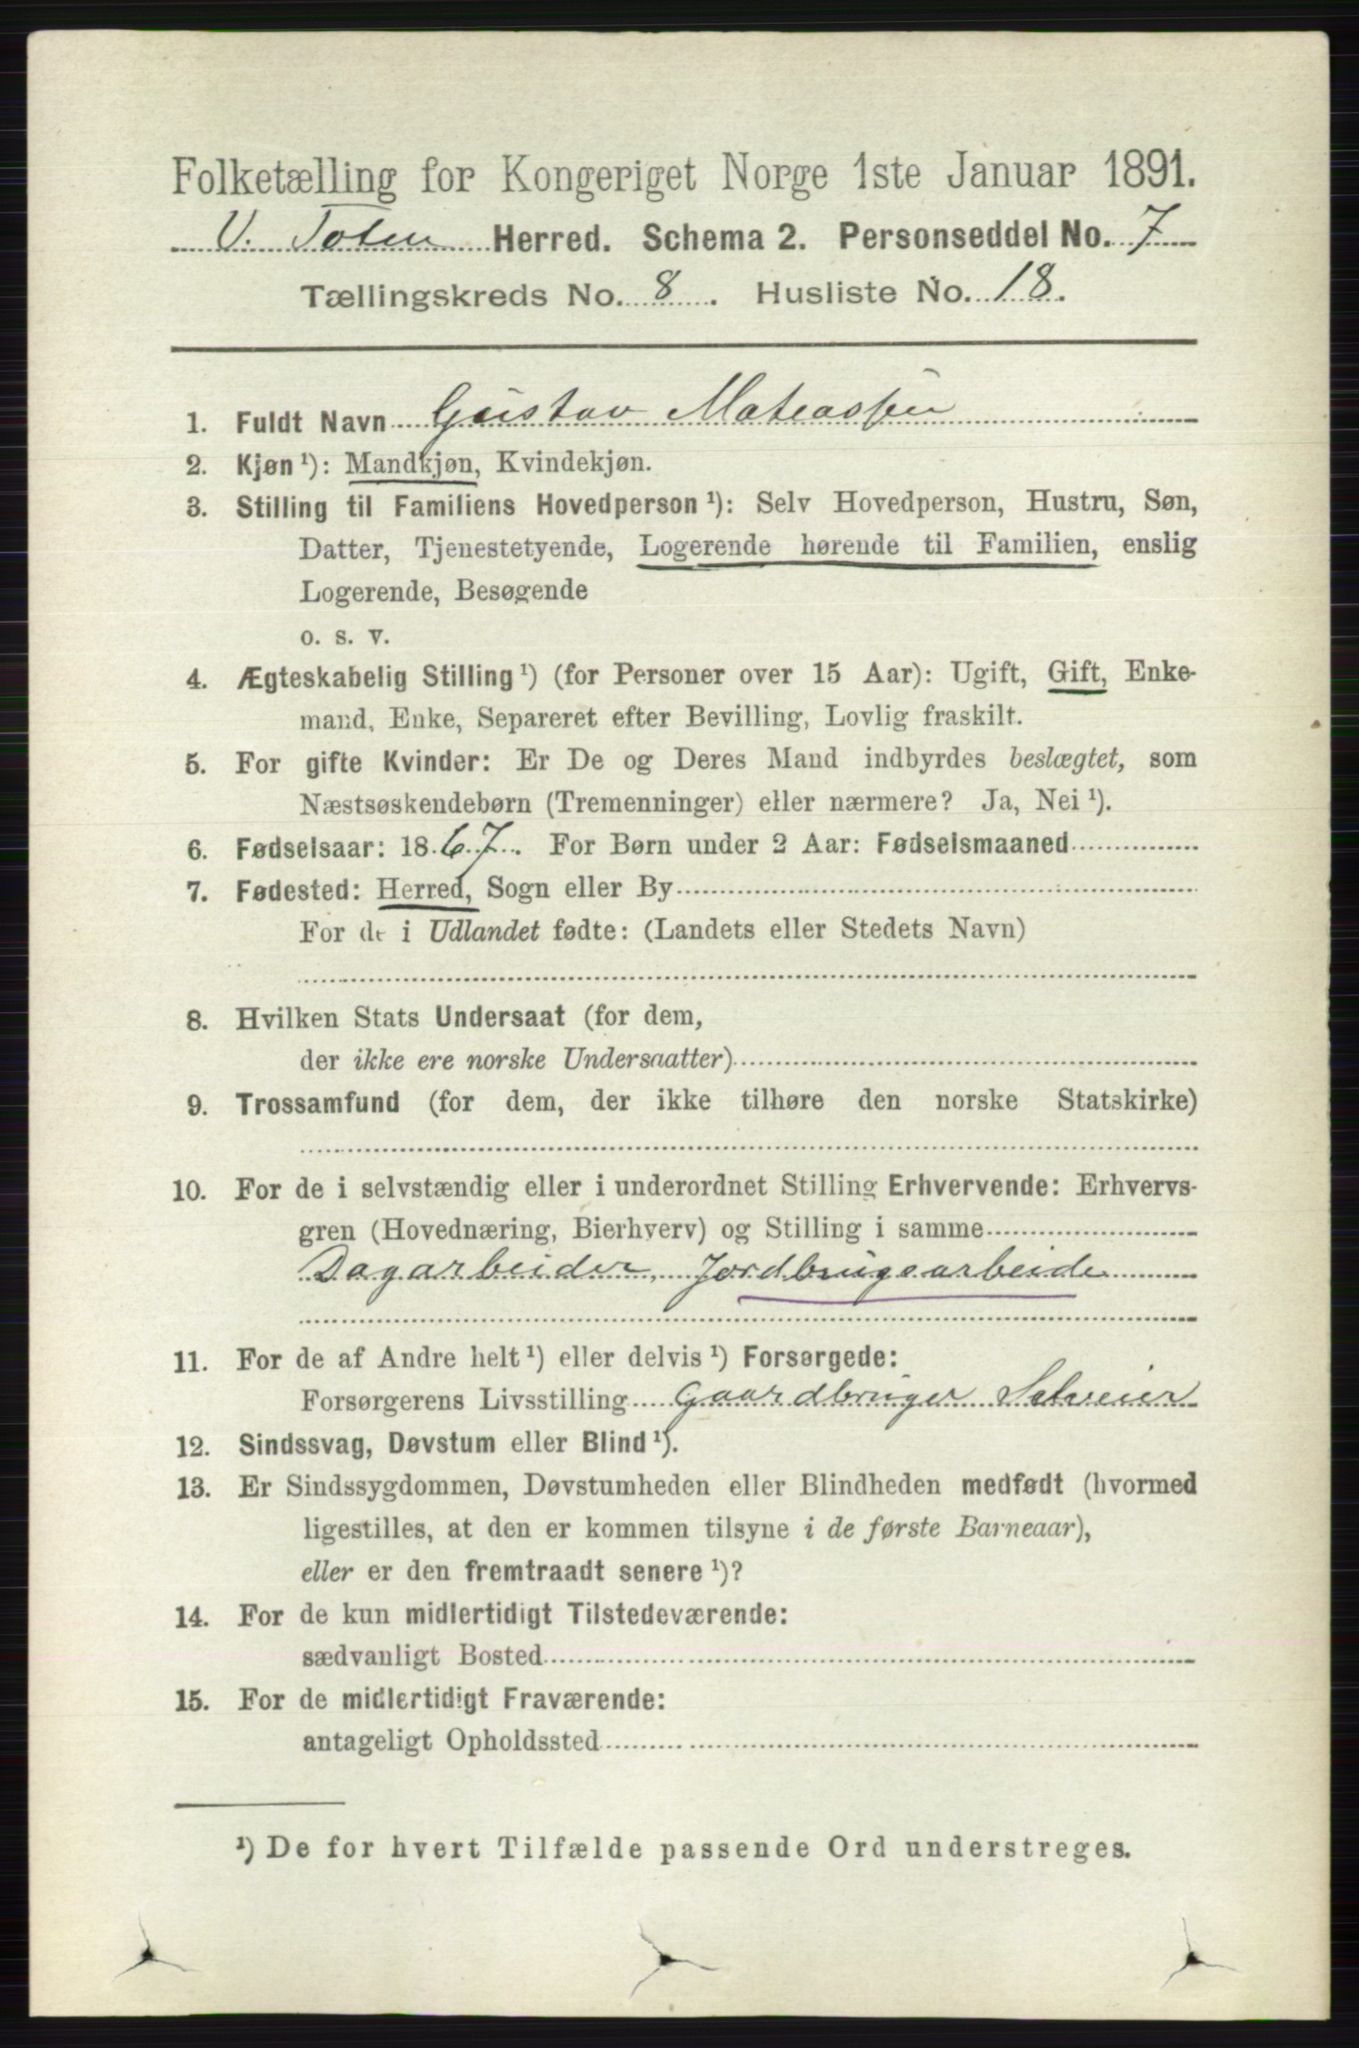 Folketælling for Kongeriget Norge 1ste Januar 1891.
V. Toten Herred. Schema 2. Personseddel No. 7
Tællingskreds No. 8. Husliste No. 18.
1. Fuldt Navn Gustav Mateassen
2. Kjøn ¹): Mandkjøn, Kvindekjøn.
3. Stilling til Familiens Hovedperson ¹): Selv Hovedperson, Hustru, Søn,
Datter, Tjenestetyende, Logerende hørende til Familien, enslig
Logerende, Besøgende
o. s. v.
4. Ægteskabelig Stilling ¹) (for Personer over 15 Aar): Ugift, Gift, Enke-
mand, Enke, Separeret efter Bevilling, Lovlig fraskilt.
5. For gifte Kvinder: Er De og Deres Mand indbyrdes beslægtet, som
Næstsøskendebørn (Tremenninger) eller nærmere? Ja, Nei ¹).
6. Fødselsaar: 1867. For Børn under 2 Aar: Fødselsmaaned
7. Fødested: Herred, Sogn eller By
For de i Udlandet fødte: (Landets eller Stedets Navn)
8. Hvilken Stats Undersaat (for dem,
der ikke ere norske Undersaatter)
9. Trossamfund (for dem, der ikke tilhøre den norske Statskirke)
10. For de i selvstændig eller i underordnet Stilling Erhvervende: Erhvervs-
gren (Hovednæring, Bierhverv) og Stilling i samme
Dagarbeider, Jordbrugsarbeide
11. For de af Andre helt ¹) eller delvis ¹) Forsørgede:
Forsørgerens Livsstilling Gaardbruger Selveier
12. Sindssvag, Døvstum eller Blind ¹).
13. Er Sindssygdommen, Døvstumheden eller Blindheden medfødt (hvormed
ligestilles, at den er kommen tilsyne i de første Barneaar),
eller er den fremtraadt senere ¹)?
14. For de kun midlertidigt Tilstedeværende:
sædvanligt Bosted
15. For de midlertidigt Fraværende:
antageligt Opholdssted
¹) De for hvert Tilfælde passende Ord understreges.